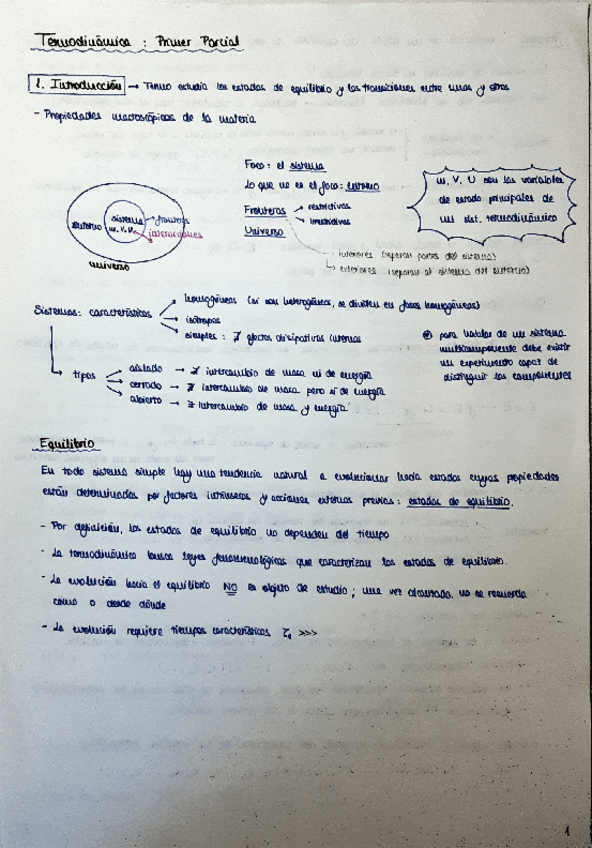 Termodinámica : Primer Parcial
1. Introducción → Termo estudia los estados de equilibrio y las transiciones entre unos y otros
- Propiedades macroscópicas de la materia
Foco: el sistema
Lo que no es el foco: entorno
Fronteras → restrictivas
→ irrestrictivas
Universo
interiores (separan partes del sistema)
exteriores (separan al sistema del entorno)
m, V, U son las variables
de estado principales de
un sist. termodinámico
entorno
sistema
m, V, U
frontera
interacciones
universo
Sistemas: características
homogéneas (si son heterogéneas, se dividen en fases homogéneas)
isótropas
simples: ∄ efectos disipativos internos
tipos
aislado → ∄ intercambio de masa ni de energía
cerrado → ∄ intercambio de masa pero sí de energía
abierto → ∃ intercambio de masa y energía
para hablar de un sistema
multicomponente debe existir
un experimento capaz de
distinguir los componentes
Equilibrio
En todo sistema simple hay una tendencia natural a evolucionar hacia estados cuyas propiedades
están determinadas por factores intrínsecos y acciones externas previas: estados de equilibrio.
- Por definición, los estados de equilibrio no dependen del tiempo
- La termodinámica busca leyes fenomenológicas que caracterizan los estados de equilibrio.
- La evolución hacia el equilibrio NO es objeto de estudio; una vez alcanzado, no se recuerda
cómo o desde dónde
- La evolución requiere tiempos característicos >>>
1